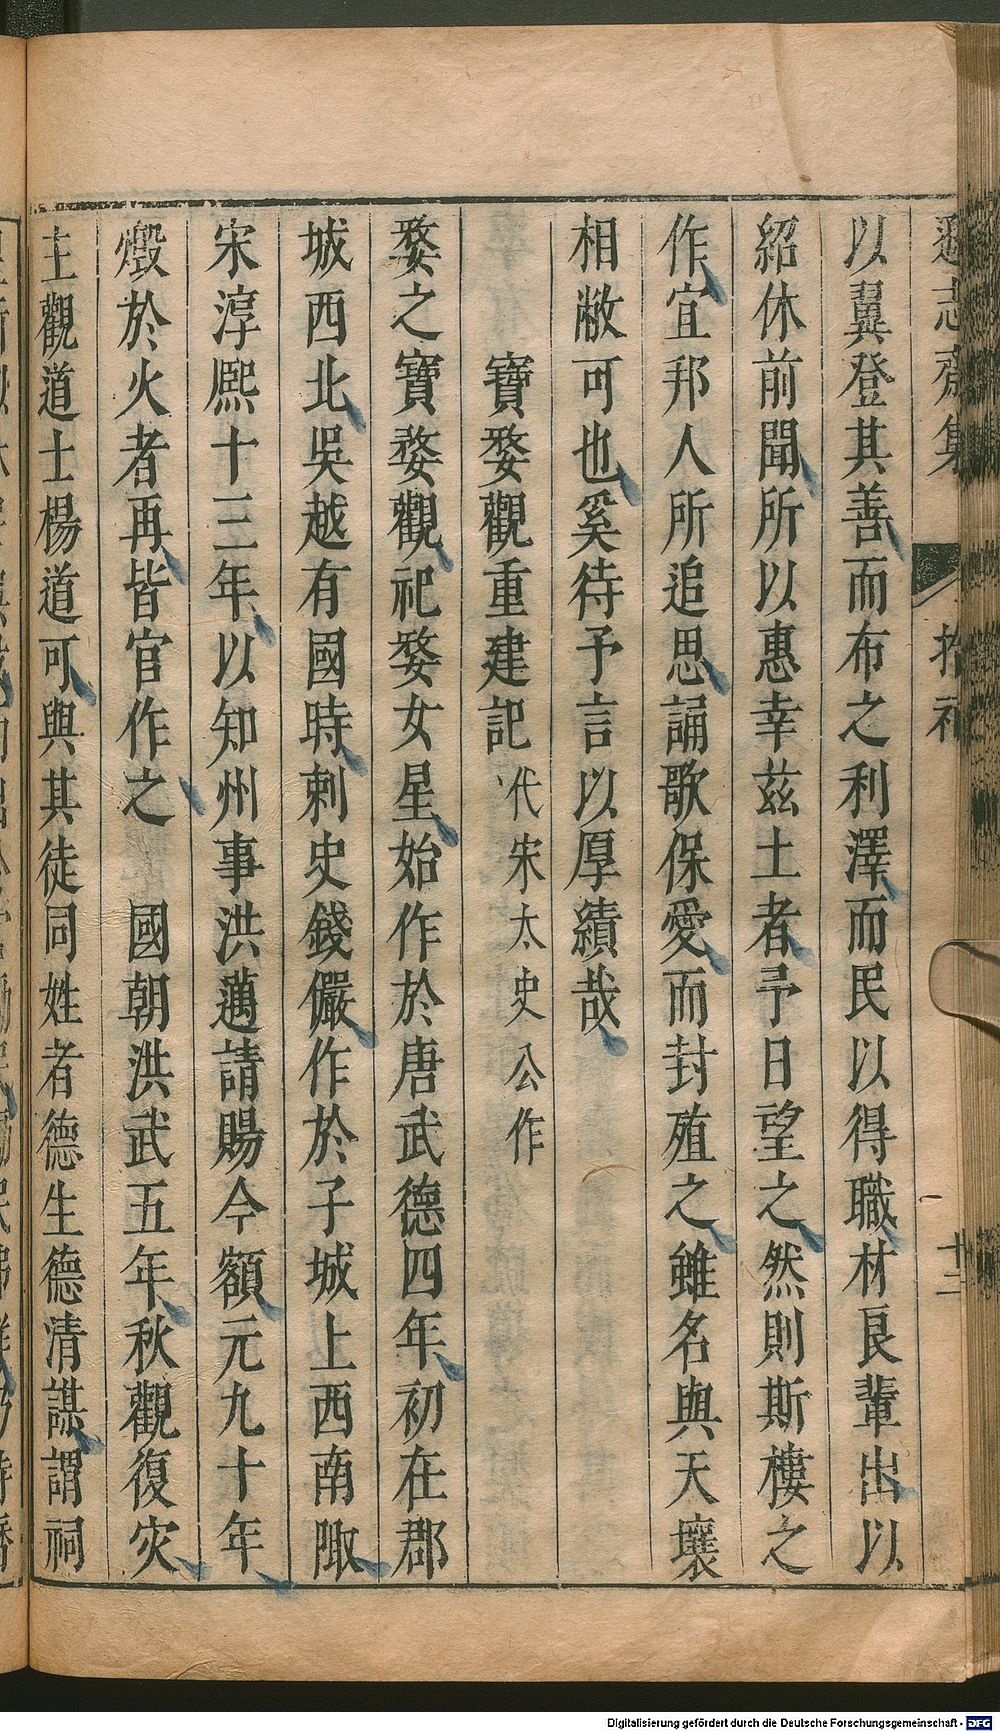 遜志齋集
十二
以翼登其善而布之利澤而民以得職材良輩出以
紹休前聞所以惠幸兹土者予日望之然則斯樓之
作宜邦人所追思誦歌保愛而封殖之雖名與天壤
相敝可也奚待予言以厚績哉
寶婺觀重建記 代宋太史公作
婺之寶婺觀祀婺女星始作於唐武德四年初在郡
城西北吳越有國時刺史錢儼作於子城上西南陬
宋淳熙十三年以知州事洪邁請賜今額元九十年
燬於火者再皆官作之 國朝洪武五年秋觀復灾
主觀道士楊道可與其徒同姓者德生德清謀謂祠
Digitalisierung gefördert durch die Deutsche Forschungsgemeinschaft - DFG